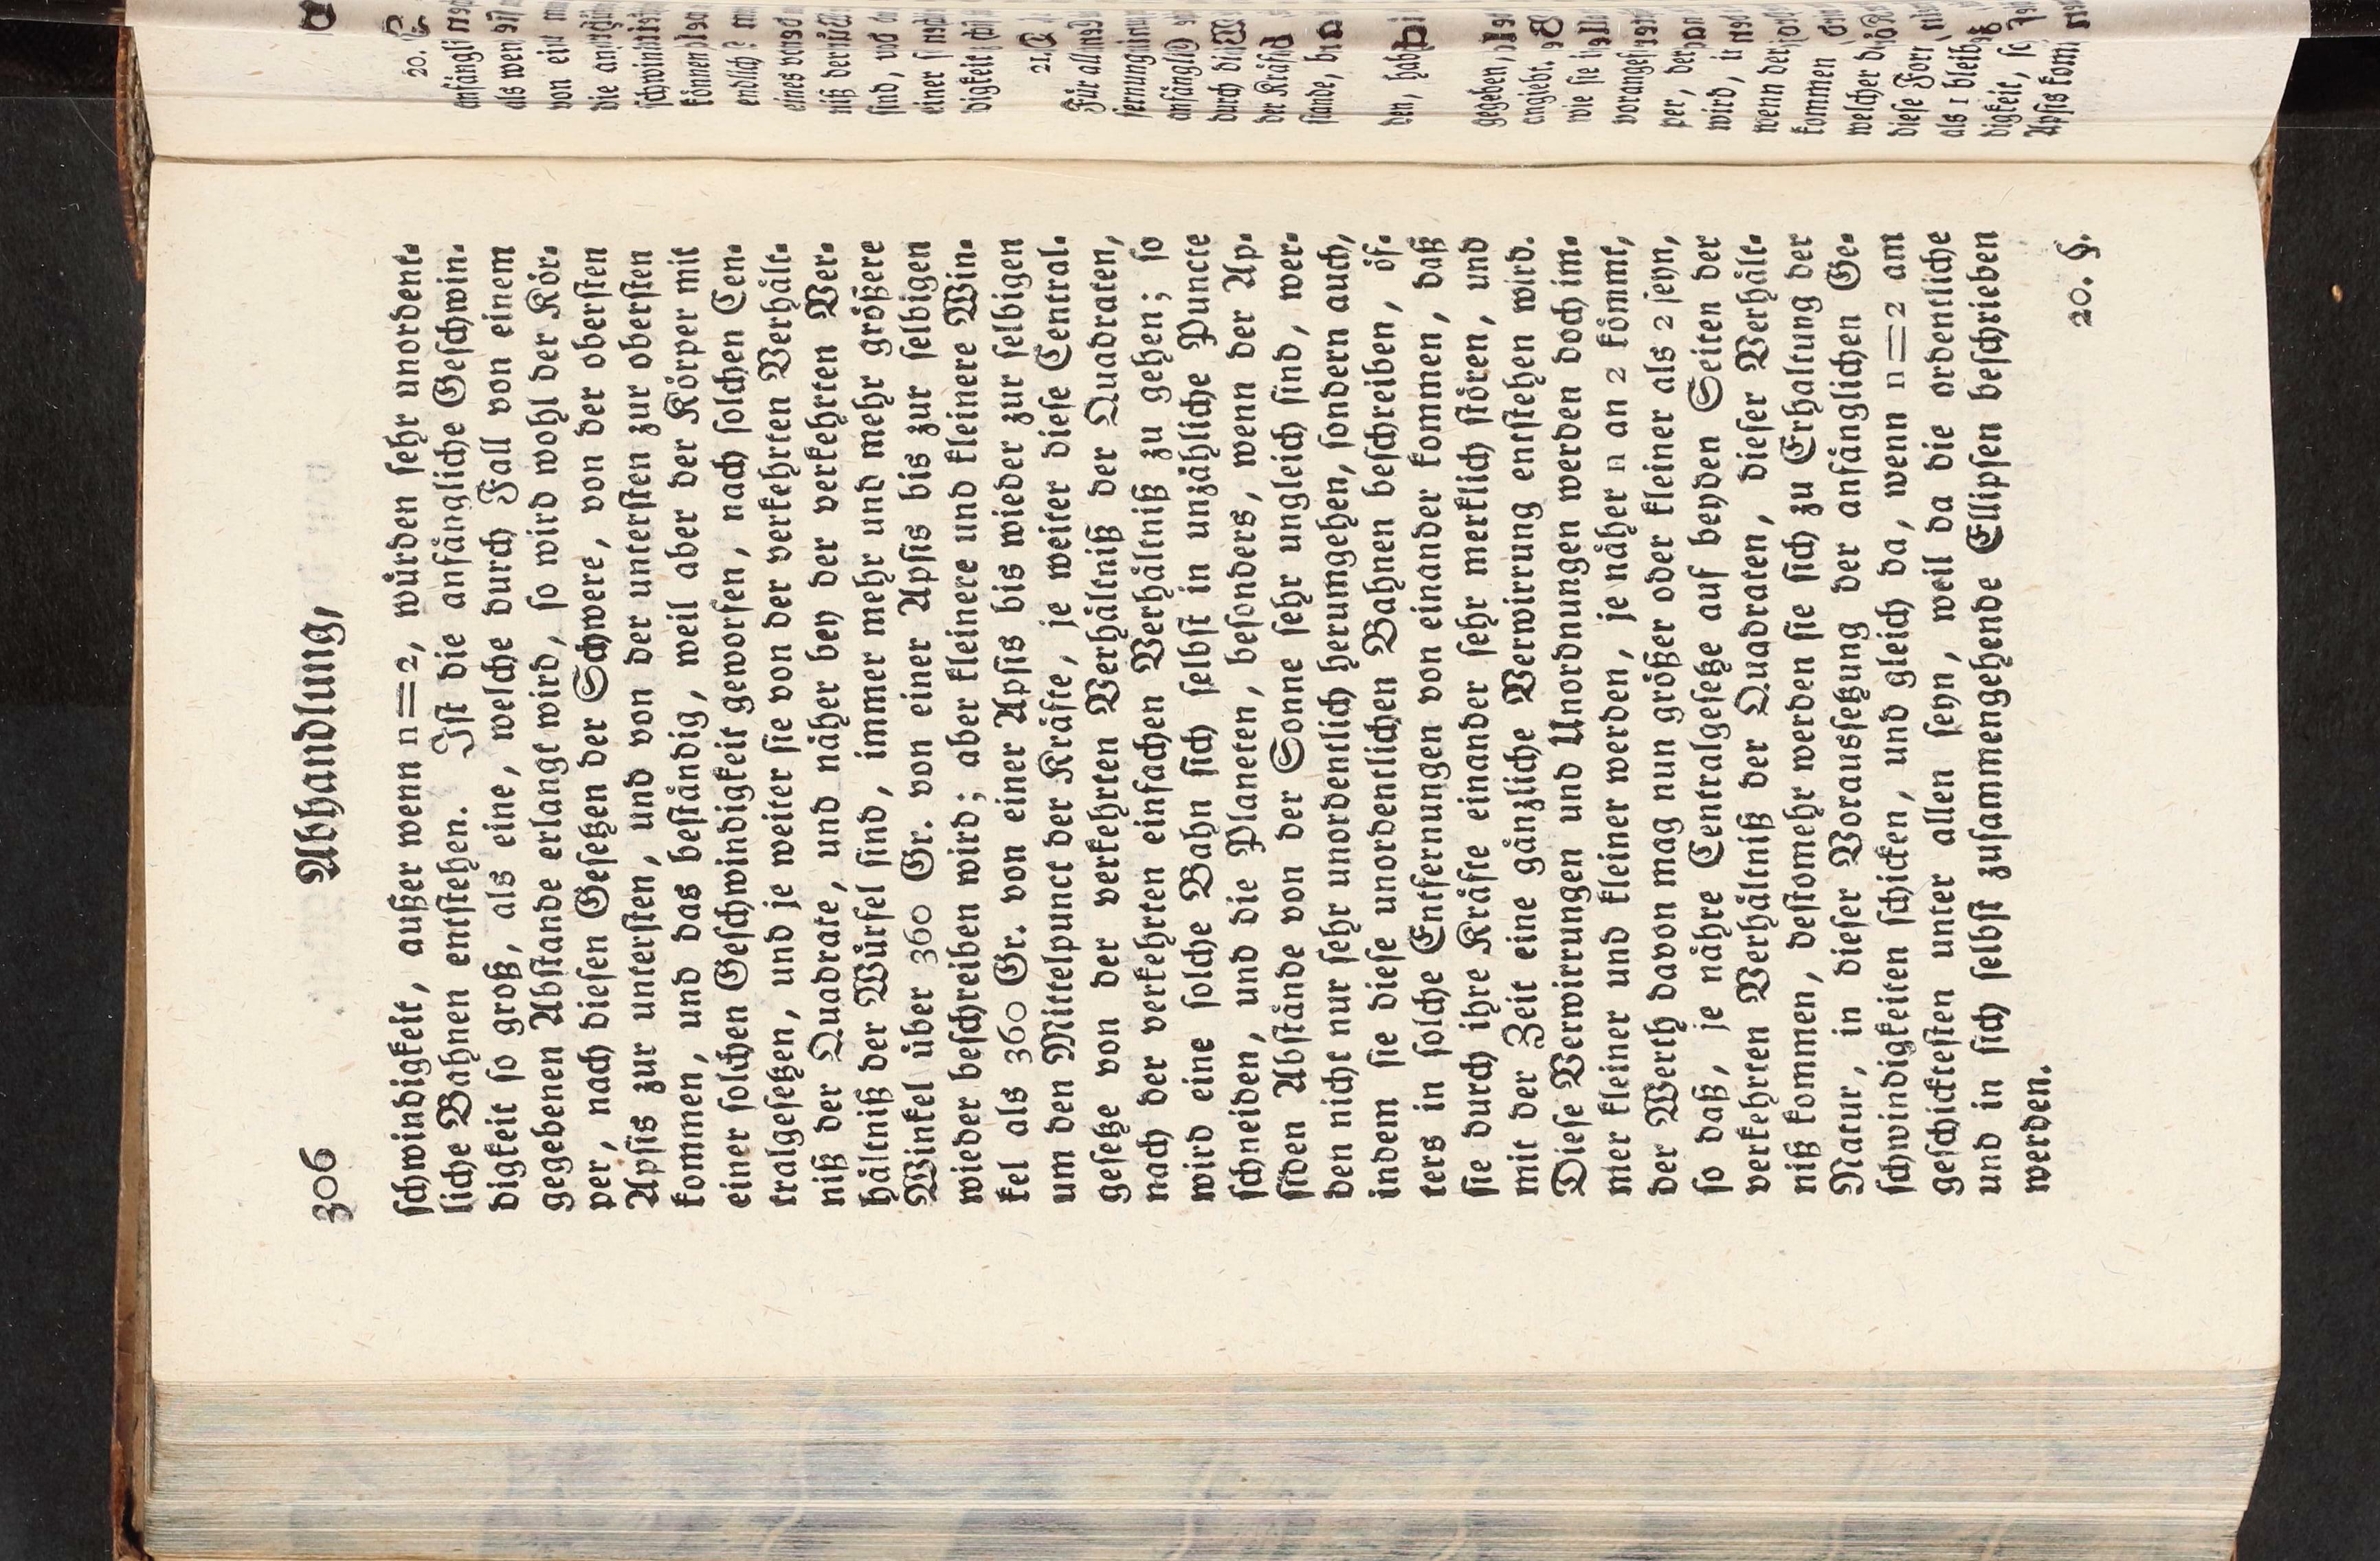 306 Abhandlung,
ſchwindigkeit, außer wenn n=2, wuͤrden ſehr unordent-
liche Bahnen entſtehen. Iſt die anfaͤngliche Geſchwin-
digkeit ſo groß, als eine, welche durch Fall von einem
gegebenen Abſtande erlangt wird, ſo wird wohl der Koͤr-
per, nach dieſen Geſetzen der Schwere, von der oberſten
Apſis zur unterſten, und von der unterſten zur oberſten
kommen, und das beſtaͤndig, weil aber der Koͤrper mit
einer ſolchen Geſchwindigkeit geworfen, nach ſolchen Cen-
tralgeſetzen, und je weiter ſie von der verkehrten Verhaͤlt-
niß der Quadrate, und naͤher bey der verkehrten Ver-
haͤltniß der Wuͤrfel ſind, immer mehr und mehr groͤßere
Winkel uͤber 360 Gr. von einer Apſis bis zur ſelbigen
wieder beſchreiben wird; aber kleinere und kleinere Win-
kel als 360 Gr. von einer Apſis bis wieder zur ſelbigen
um den Mittelpunct der Kraͤfte, je weiter dieſe Central-
geſetze von der verkehrten Verhaͤltniß der Quadraten,
nach der verkehrten einfachen Verhaͤltniß zu gehen; ſo
wird eine ſolche Bahn ſich ſelbſt in unzaͤhliche Puncte
ſchneiden, und die Planeten, beſonders, wenn der Ap-
ſiden Abſtaͤnde von der Sonne ſehr ungleich ſind, wer-
den nicht nur ſehr unordentlich herumgehen, ſondern auch,
indem ſie dieſe unordentlichen Bahnen beſchreiben, oͤf-
ters in ſolche Entfernungen von einander kommen, daß
ſie durch ihre Kraͤfte einander ſehr merklich ſtoͤren, und
mit der Zeit eine gaͤnzliche Verwirrung entſtehen wird.
Dieſe Verwirrungen und Unordnungen werden doch im-
mer kleiner und kleiner werden, je naͤher n an 2 koͤmmt,
der Werth davon mag nun groͤßer oder kleiner als 2 ſeyn,
ſo daß, je naͤhre Centralgeſetze auf beyden Seiten der
verkehrten Verhaͤltniß der Quadraten, dieſer Verhaͤlt-
niß kommen, deſtomehr werden ſie ſich zu Erhaltung der
Natur, in dieſer Vorausſetzung der anfaͤnglichen Ge-
ſchwindigkeiten ſchicken, und gleich da, wenn n=2 am
geſchickteſten unter allen ſeyn, weil da die ordentliche
und in ſich ſelbſt zuſammengehende Ellipſen beſchrieben
werden.
20. §.
20.
anfaͤngli
als wen
von ein
die an
ſchwin
koͤnnen
endlich
eines
niß der
ſind, und
einer
digkeit
21.
Fuͤr all
fernung
anfaͤngl
durch di
der Kraͤf
ſtande, b
den, hab
gegeben,
angiebt.
wie ſie
vorangeſ
per, der
wird,
wenn der
kommen
welcher
dieſe For
als 1 bleib
digkeit,
Apſis kom